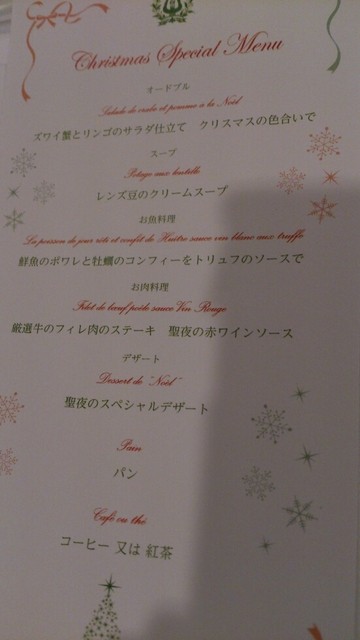 Christmas Special Menu
オードブル
Salade de crabe et pomme à la Noël
ズワイ蟹とリンゴのサラダ仕立て　クリスマスの色合いで
スープ
Potage aux lentille
レンズ豆のクリームスープ
お魚料理
La poisson de jour rôti et confit de Huître sauce vin blanc aux truffe
鮮魚のポワレと牡蠣のコンフィーをトリュフのソースで
お肉料理
Filet de bœuf poêle sauce Vin Rouge
厳選牛のフィレ肉のステーキ　聖夜の赤ワインソース
デザート
Dessert de "Noël"
聖夜のスペシャルデザート
Pain
パン
Café ou thé
コーヒー 又は 紅茶